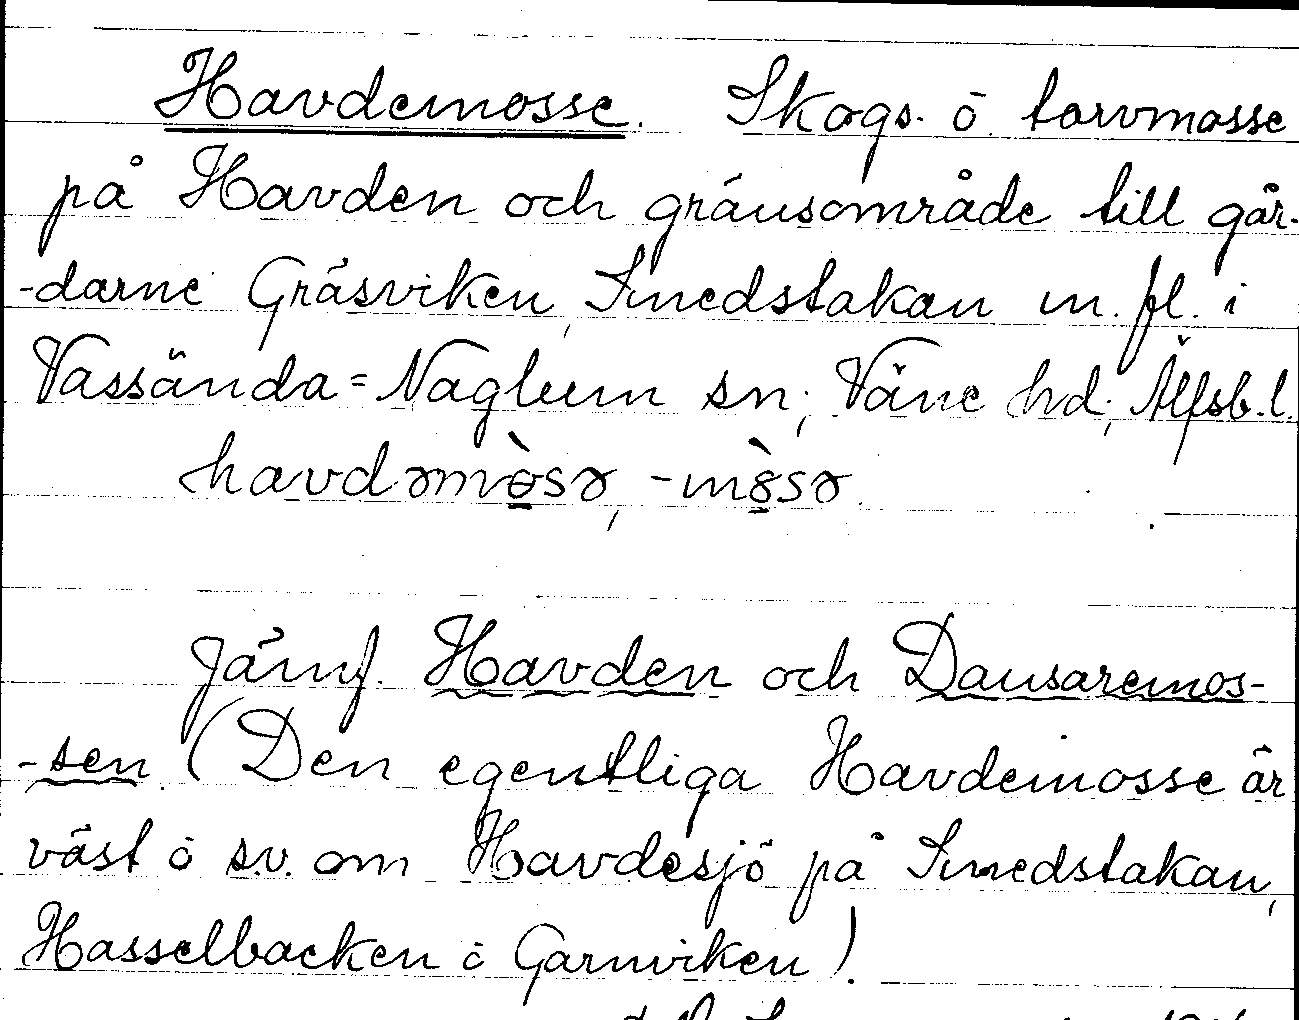 Havdemosse. Skogs- o torvmosse
på Havden och gränsområde till går-
-darne Gräsviken, Smedstakan m. fl. i
Vassända=Naglum sn; Väne hd; Älfsb. l.
havdəmòsə, -mòsə.
Jämf. Havden och Dansaremos-
-sen. (Den egentliga Havdemosse är
väst o s.v. om Havdesjö på Smedstakan,
Hasselbacken o Garnviken).